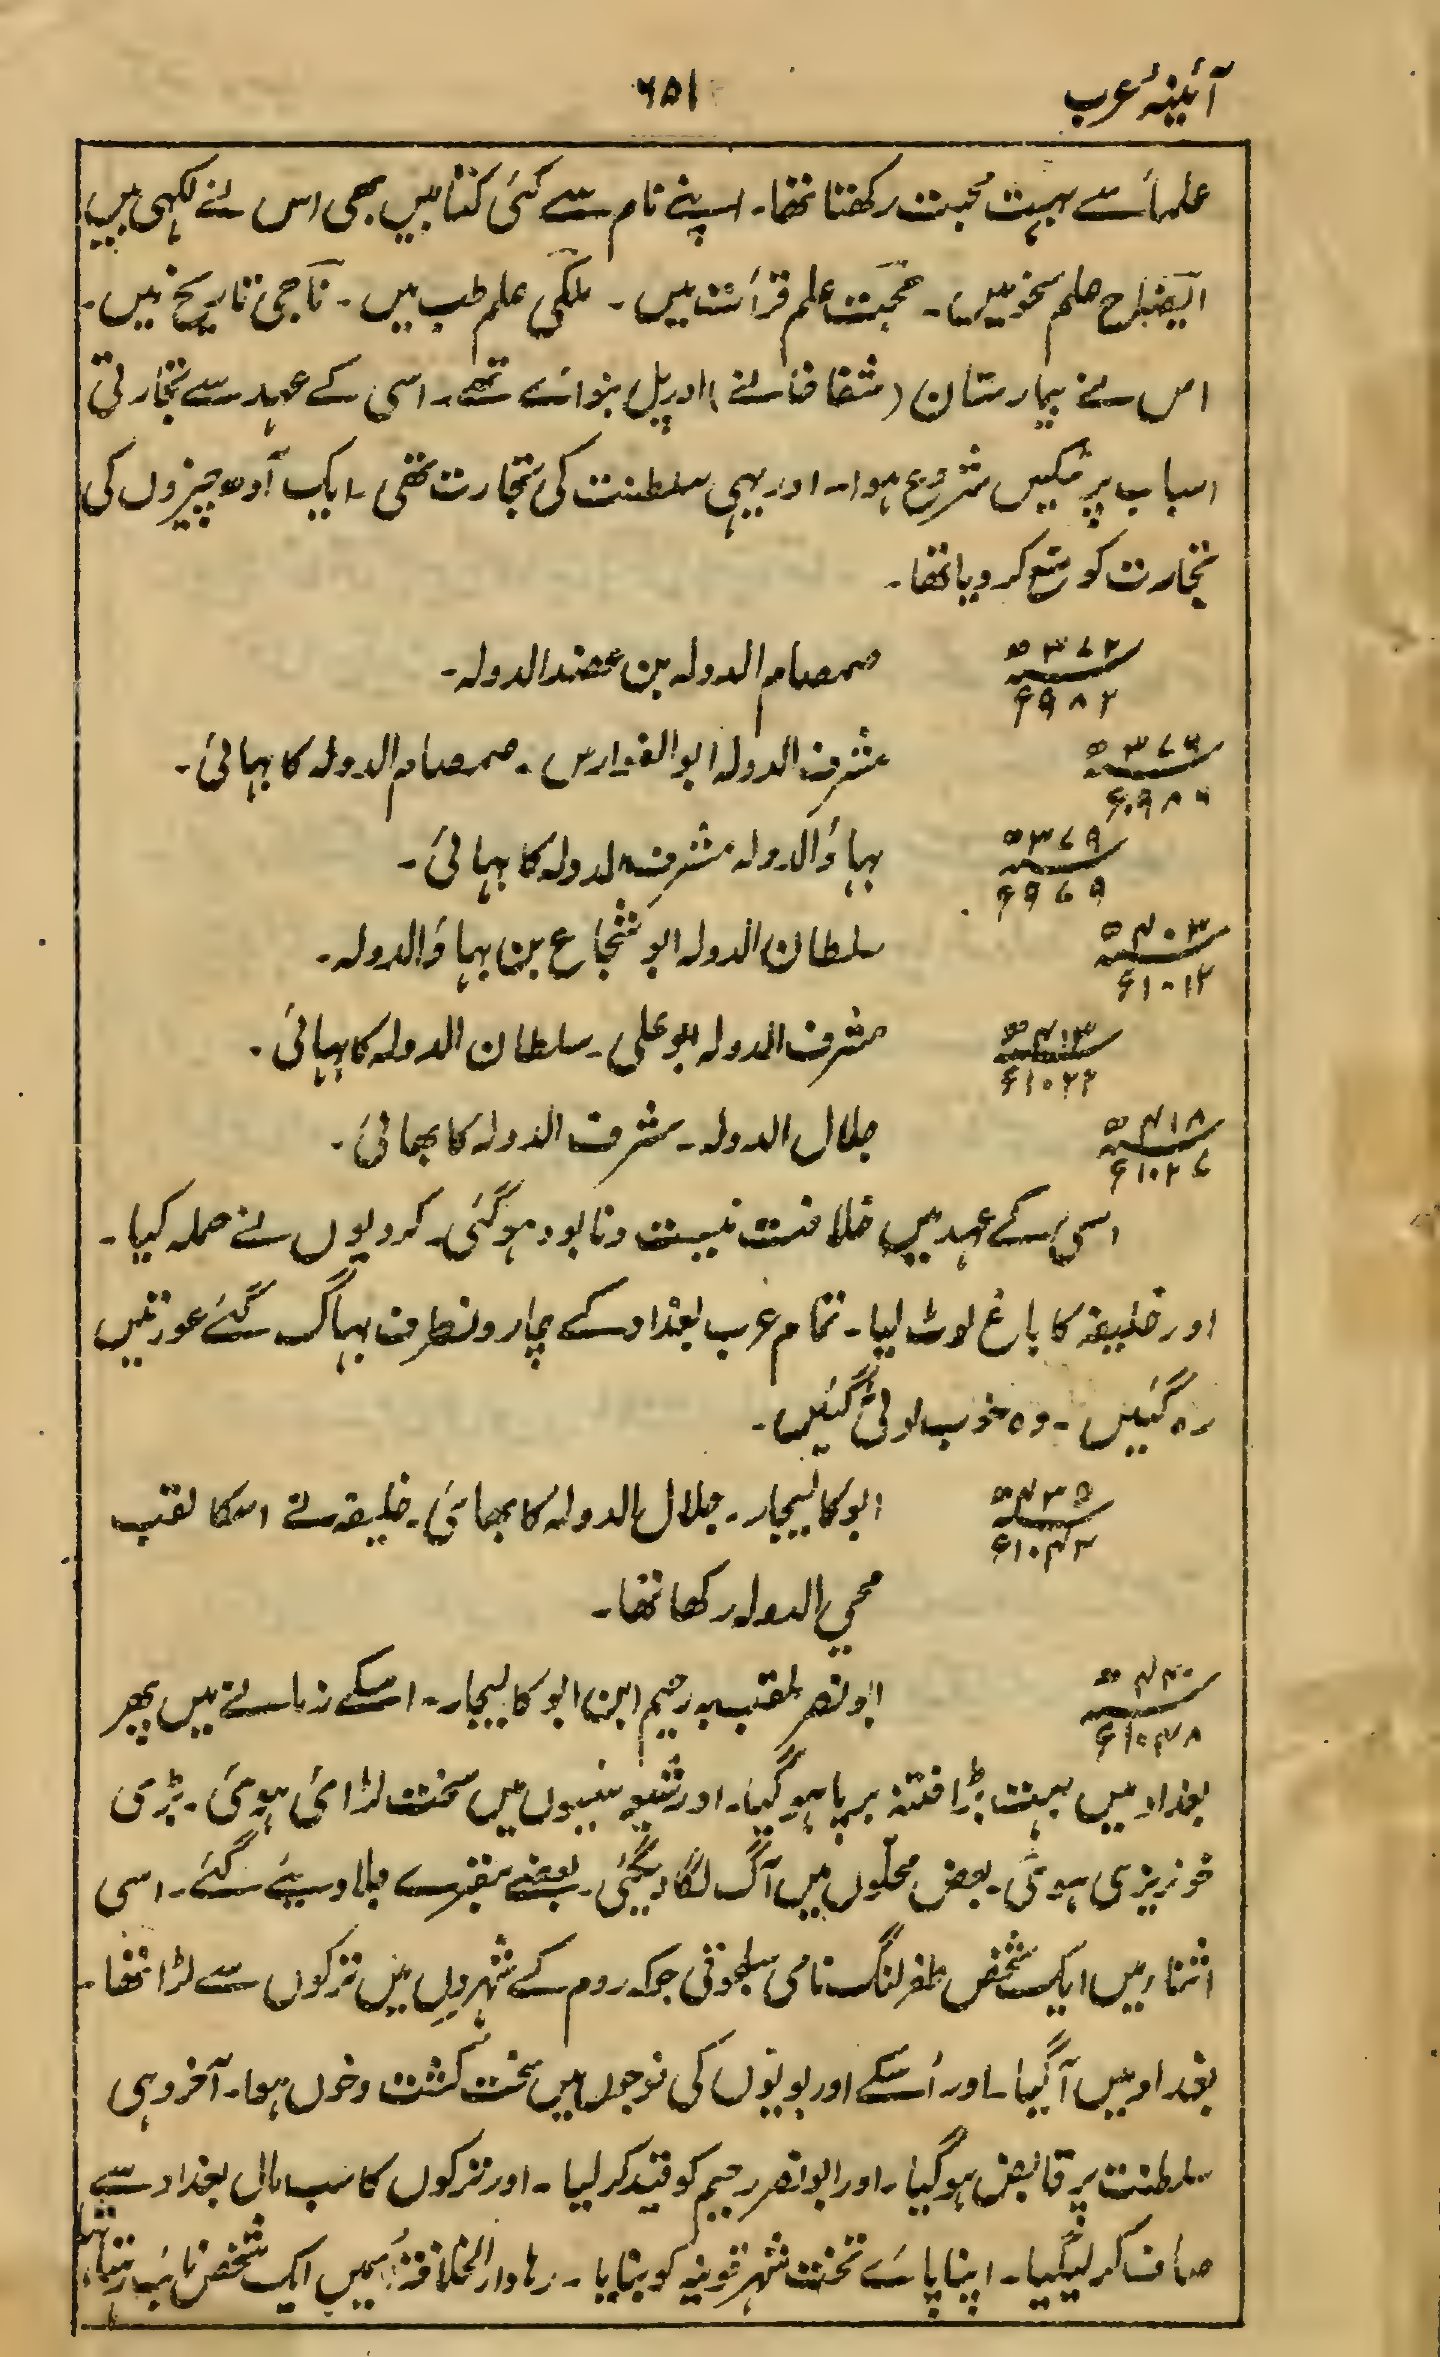 آئینۂ عرب
۶۵۱
علمأسے بہت محبت رکھتا تھا۔ اپنے نام سے کئی کتابیں بھی اس نے لکہی ہیں
الیضاح علم نحو میں۔ حجبت علم قرأت میں۔ ملکی علم طب میں۔ تاجی تاریخ میں۔
اس نے بیمارستان (شفاخانے) اور پل بنوائے تھے۔ اسی کے عہد سے تجارتی
اسباب پر ٹیکس شروع ہوا۔ اور یہی سلطنت کی تجارت تھی۔ ایک آدھ چیزوں کی
تجارت کو منع کر دیا تھا۔
۳۷۲ھ
۹۸۲ء
صمصام الدولہ بن عضد الدولہ۔
۳۷۶ھ
۹۸۶ء
مشرف الدولہ ابو الفوارس۔ صمصام الدولہ کا بہائی۔
۳۷۹ھ
۹۷۹ء
بہاؤ الدولہ مشرف الدولہ کا بہائی۔
۴۰۳ھ
۱۰۱۲ء
سلطان الدولہ ابو شجاع بن بہاؤ الدولہ۔
۴۱۳ھ
۱۰۲۲ء
مشرف الدولہ ابو علی۔ سلطان الدولہ کا بہائی۔
۴۱۸ھ
۱۰۲۷ء
جلال الدولہ۔ مشرف الدولہ کا بھائی۔
اسی کے عہد میں خلافت نیست و نابود ہو گئی۔ کردیوں نے حملہ کیا۔
اور خلیفہ کا باغ لوٹ لیا۔ تمام عرب بغداد کے چاروں طرف بہاگ گئے عورتیں
رہ گئیں۔ وہ خوب لوٹی گئیں۔
۴۳۵ھ
۱۰۴۳ء
ابو کالیجار۔ جلال الدولہ کا بھائی۔ خلیفہ نے اسکا لقب
محی الدولہ رکھا تھا۔
۴۴۰ھ
۱۰۴۸ء
ابو نصر ملقب بہ رحیم ابن ابو کالیجار۔ اسکے زمانے میں پھر
بغداد میں بہت بڑا فتنہ برپا ہو گیا۔ اور شیعہ سنیوں میں سخت لڑائی ہوئی۔ بڑی
خونریزی ہوئی۔ بعض محلّوں میں آگ لگا دیگئی۔ بعضے مقبرے جلا دیئے گئے۔ اسی
اثناء میں ایک شخص طغرلنگ نامی سلجوقی جوکہ روم کے شہروں میں ترکوں سے لڑا تھا۔
بغداد میں آگیا۔ اور اُسکے اور بویوں کی فوجوں میں سخت کشت و خوں ہوا۔ آخر وہی
سلطنت پر قابض ہو گیا۔ اور ابو نصر رحیم کو قید کر لیا۔ اور ترکوں کا سب مال بغداد سے
صاف کر لیگیا۔ اپنا پائے تخت شہر قونیہ کو بنایا۔ رہا دار الخلافۃ اسمیں ایک شخص نائب رہتا تہا